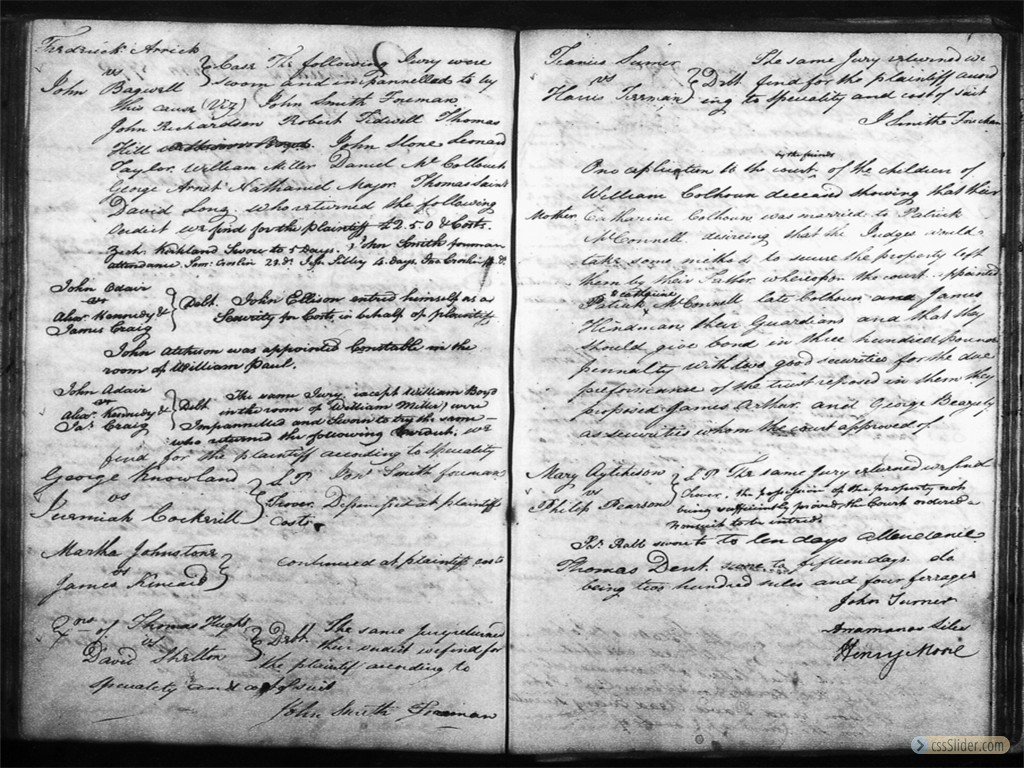 Fredrick Arrick
vs } Case The following Jury were
John Bagwell sworn and impannelled to try
this cause (Viz) John Smith Foreman
John Richardson Robert Tidwell Thomas
Hill John Stone Leonard
Taylor William Miller Daniel McCollouch
George Arnet Nathaniel Major Thomas Saint
David Long who returned the following
verdict we find for the plaintiff £ 2.5.0 & Costs.
Zach. Kirkland Swore to 5 Days. John Smith foreman
attendance Jas. Conlin 23 Ds. Jesse Sibley 4 days.
John Adair
vs
Alexr. Kennedy & } Debt. John Ellison entred himself as a
James Craig Security for Costs, in behalf of plaintiff
John Atchison was appointed Constable in the
room of William Paul.
John Adair
vs
Alexr. Kennedy & } Debt The same Jury except William Boyd
Jas. Craig in the room of William Miller) were
Impannelled and Sworn to try the same
who returned the following Verdict, we
find for the plaintiff according to speciality
George Knowland } S P Jon. Smith foreman
vs Trover. Dismissed at plaintiffs
Jeremiah Cockrill Costs.
Martha Johnstone
vs } continued at plaintiff costs
James Kincaid
of Thomas Hughs
vs } Debt. The same Jury returned
David Shelton their verdict we find for
the plaintiff according to
speciality and cost of suit
John Smith Foreman
Francis Seamer The same Jury returned we
vs } Debt find for the plaintiff accord
Harris Tirrman ing to speciality and cost of suit
J Smith Foreman
by the friends
One aplication to the court, of the children of
William Colhoun deceasd showing that their
Mother Catharine Colhoun was married to Patrick
McConnell, desireing that the Judges would
take some method to secure the property left
them by their Father whereupon the court appointed
& Catharine
Patrick McConnell late Colhoun and James
Hindman their Guardians and that they
should give bond in three hundred pounds
pennality with two good securities for the due
preformance of the trust reposed in them they
proposed James Arthur and George Beazely
as securities whom the court approved of
Mary Aytchison } S P The same Jury returned we find
vs Trover. the possession of the property not
Philip Pearson being sufficiently proved, the Court ordered a
nonsuit to be entred.
Ralb swore to to ten days attendance
Thomas Dent swore to fifteen days do
being two hundred miles and four ferrages
John Turner
Arramanos Liles
Henry Moore
cssSlider.com